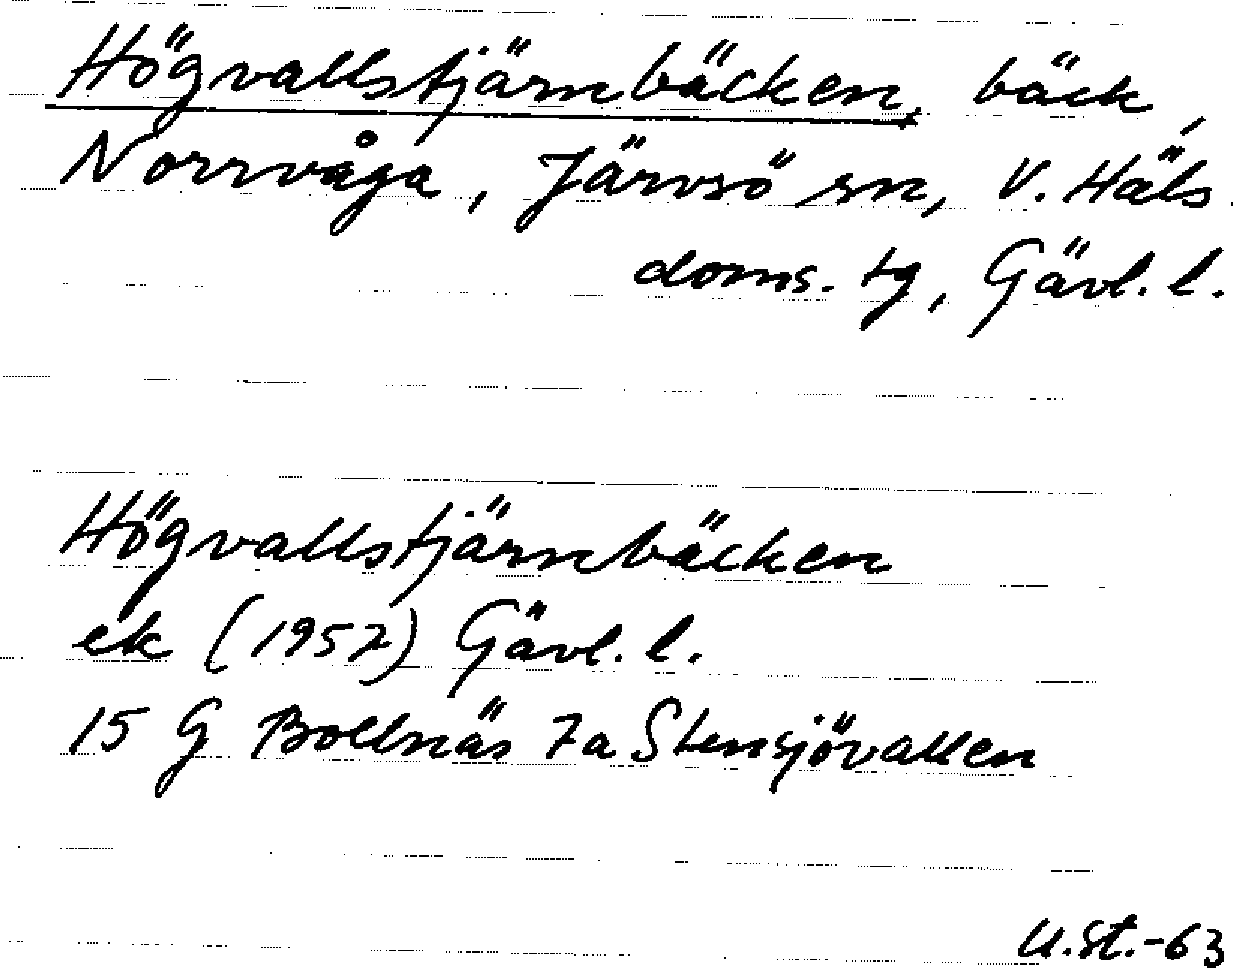 Högvallstjärnbäcken, bäck,
Norrvåga, Järvsö sn, V. Häls.
doms. tg, Gävl. l.
Högvallstjärnbäcken
ek (1957) Gävl. l.
15 G Bollnäs 7a Stensjövallen
U.St.-63